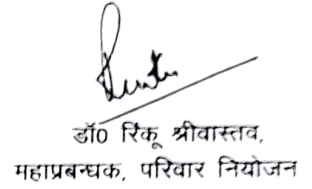 डॉ0 रिंकू श्रीवास्तव,
महाप्रबन्धक, परिवार नियोजन